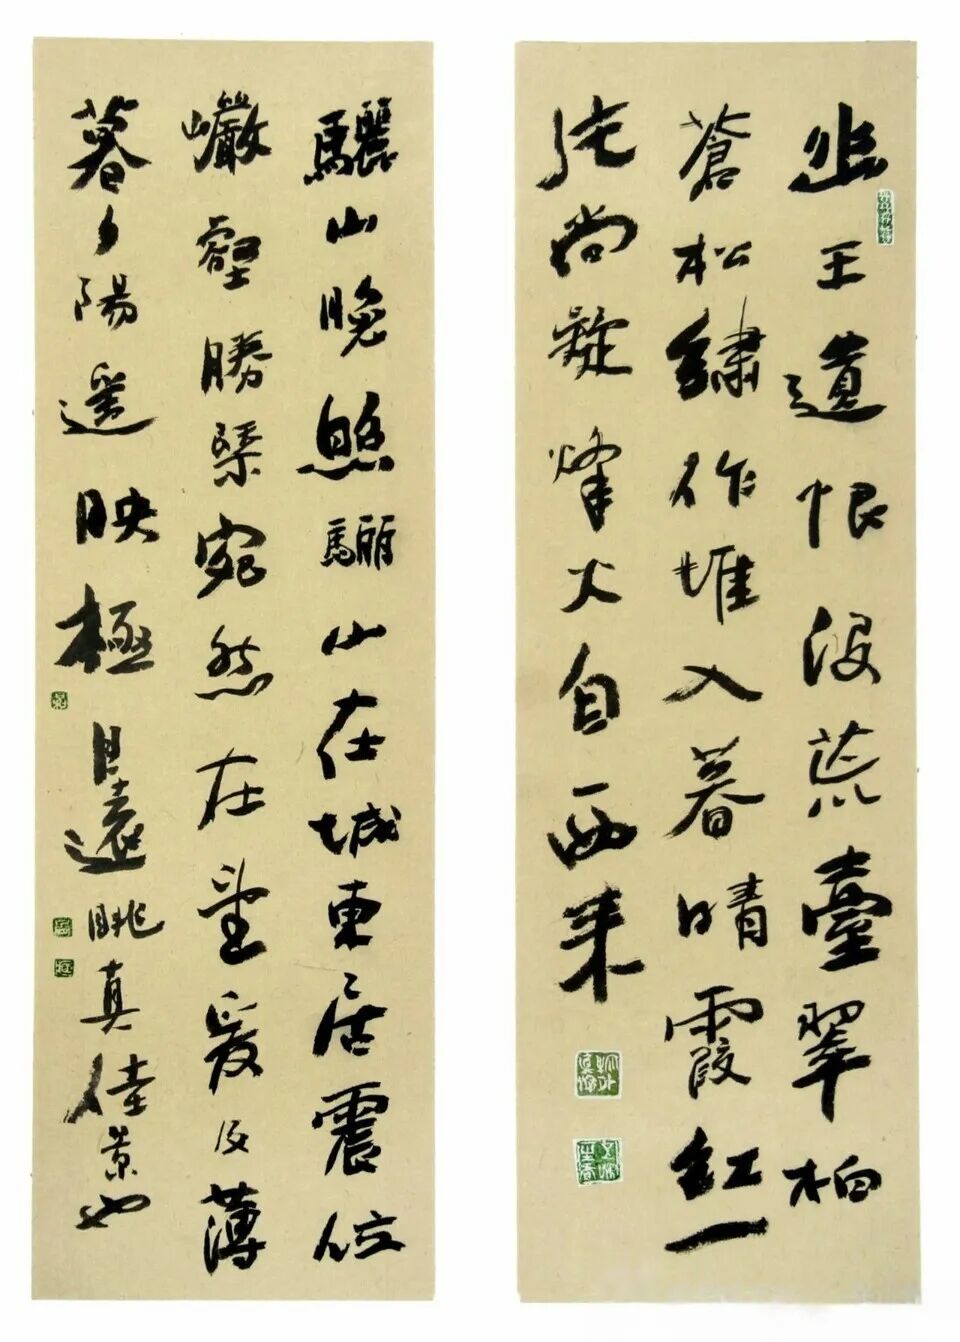 幽王遺恨沒荒臺翠柏
蒼松繡作堆入暮晴霞紅一
片尚疑烽火自西来
驪山晚照驪山在城東居震位
巖壑勝槩宛然在望爰及薄
暮夕陽遥映極目遠眺真佳景也